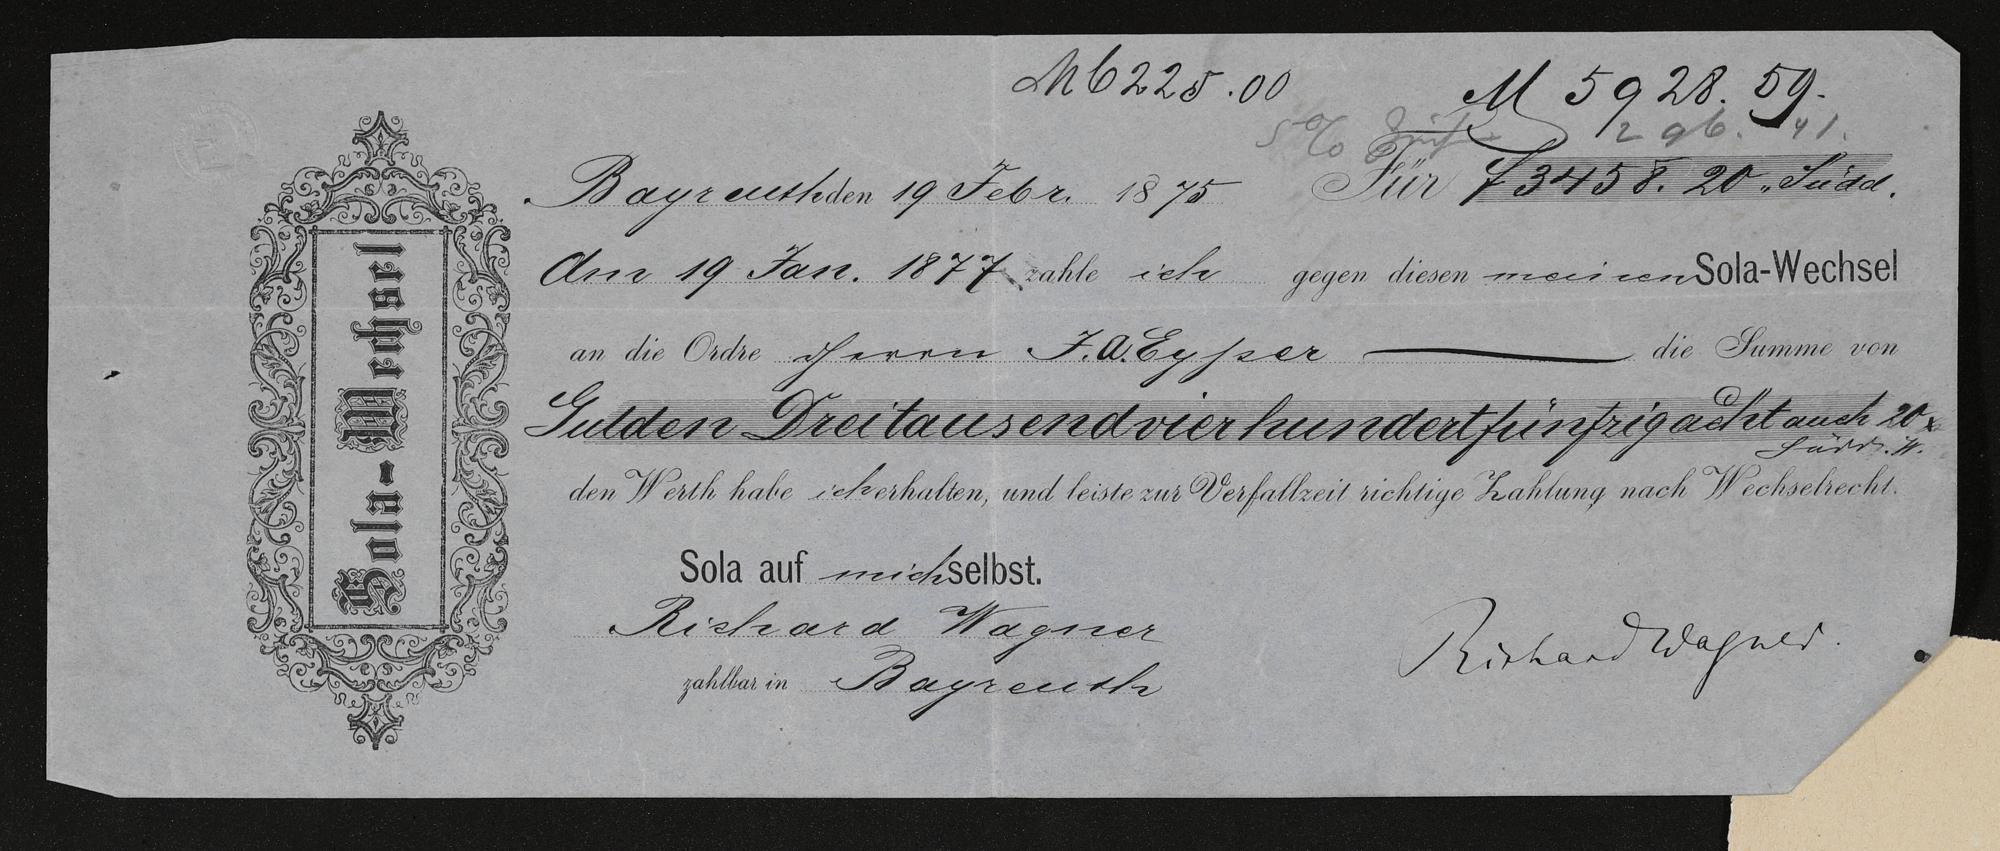 M 6225.00
M 5928.59.
5% Zins 296.41.
Bayreuth den 19 Febr. 1875 Für f 3458. 20 „ Südd.
Am 19 Jan. 1877 zahle ich gegen diesen meinen Sola-Wechsel
an die Ordre Herrn J. A. Eysser die Summe von
Gulden Dreitausendvierhundertfünfzigacht auch 20 x
Südd. W.
den Werth habe ich erhalten, und leiste zur Verfallzeit richtige Zahlung nach Wechselrecht.
Sola auf mich selbst.
Richard Wagner
zahlbar in Bayreuth
Richard Wagner.
Sola-Wechsel